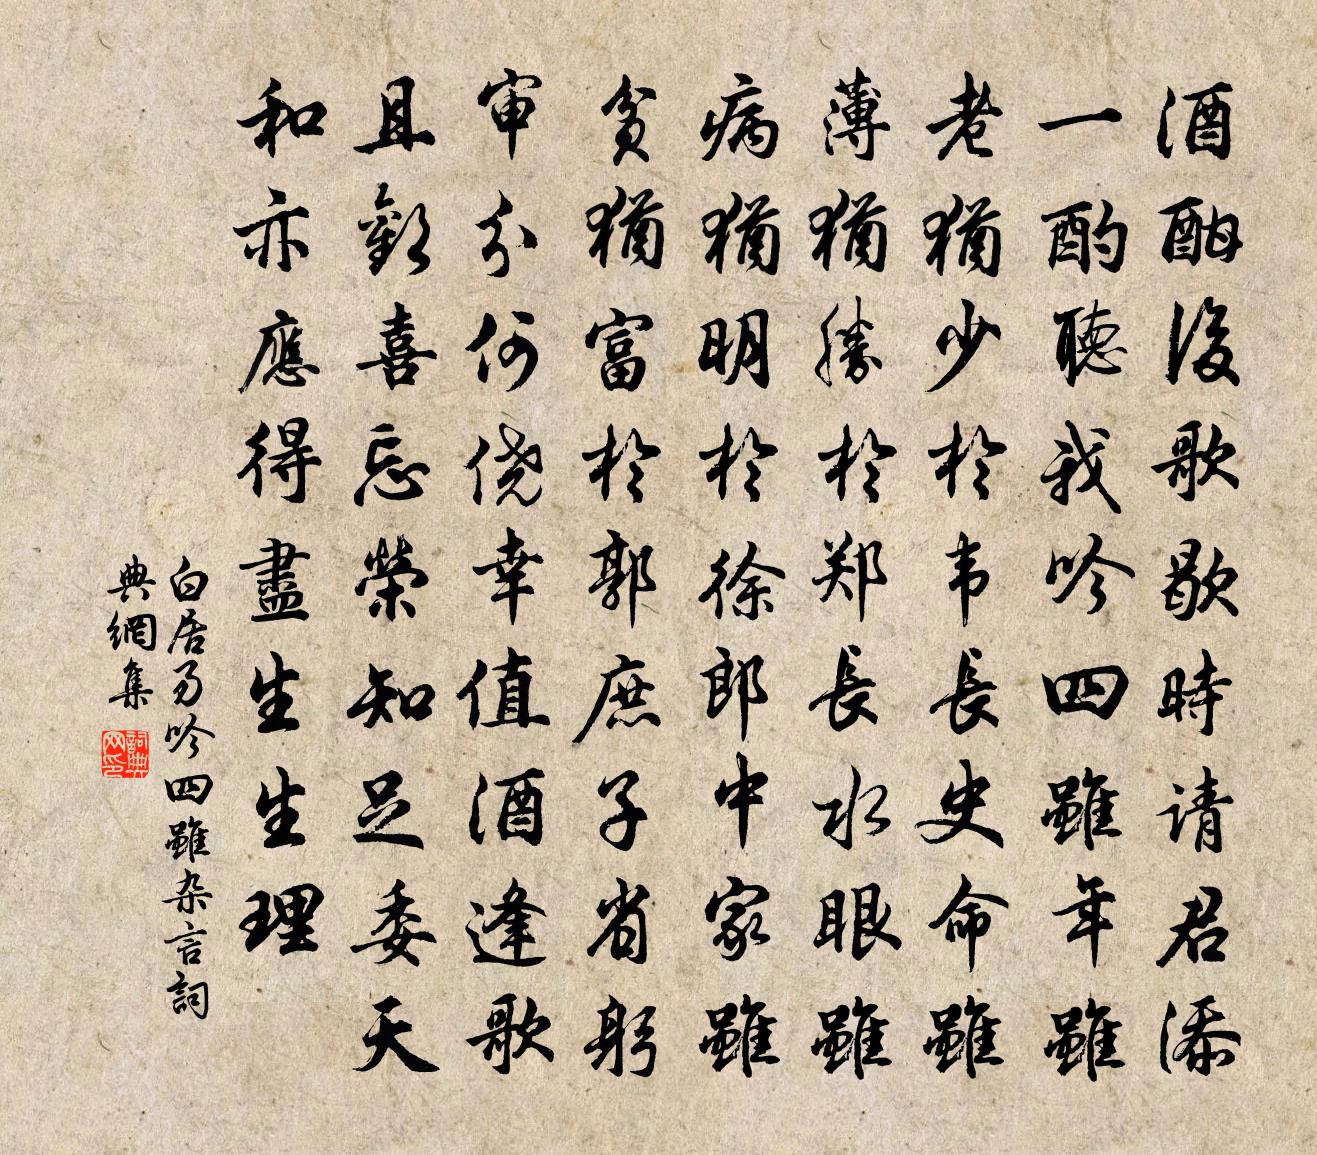 酒酣後歌歇時请君添
一酌聽我吟四雖年雖
老猶少於韦長史命雖
薄猶勝於郑長水眼雖
病猶明於徐郎中家雖
貧猶富於郭庶子省躬
审分何侥幸值酒逢歌
且歡喜忘榮知足委天
和亦應得盡生生理
白居易吟四雖杂言詞
典網集
詞典网印